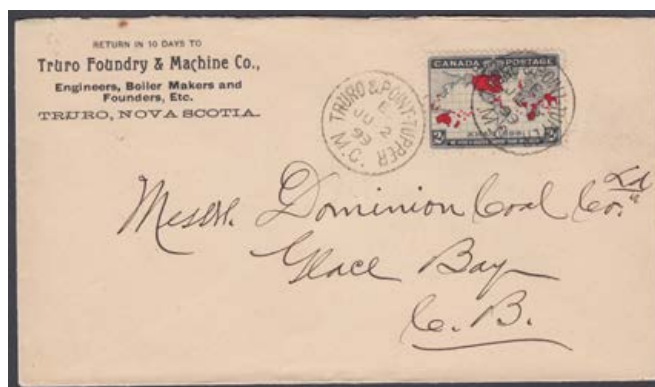 RETURN IN 10 DAYS TO
Truro Foundry & Machine Co.,
Engineers, Boiler Makers and
Founders, Etc.
TRURO, NOVA SCOTIA.
CANADA POSTAGE
TRURO & POINT-TUPPER
E
JU 2
99
M.C.
2¢
Messrs. Dominion Coal Co. Ld
Glace Bay
C. B.